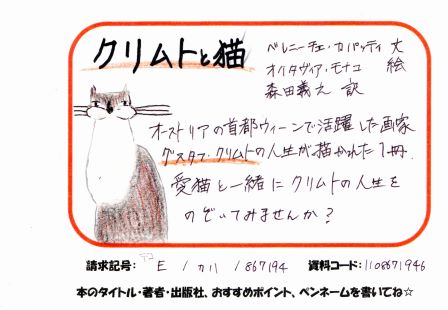 クリムトと猫
ベレニーチェ・カパッティ 文
オクタヴィア・モナコ 絵
森田義之 訳
オーストリアの首都ウィーンで活躍した画家
グスタフ・クリムトの人生が描かれた1冊.
愛猫と一緒にクリムトの人生を
のぞいてみませんか?
請求記号: E / カハ / 867194 資料コード:1108671946
本のタイトル・著者・出版社、おすすめポイント、ペンネームを書いてね☆